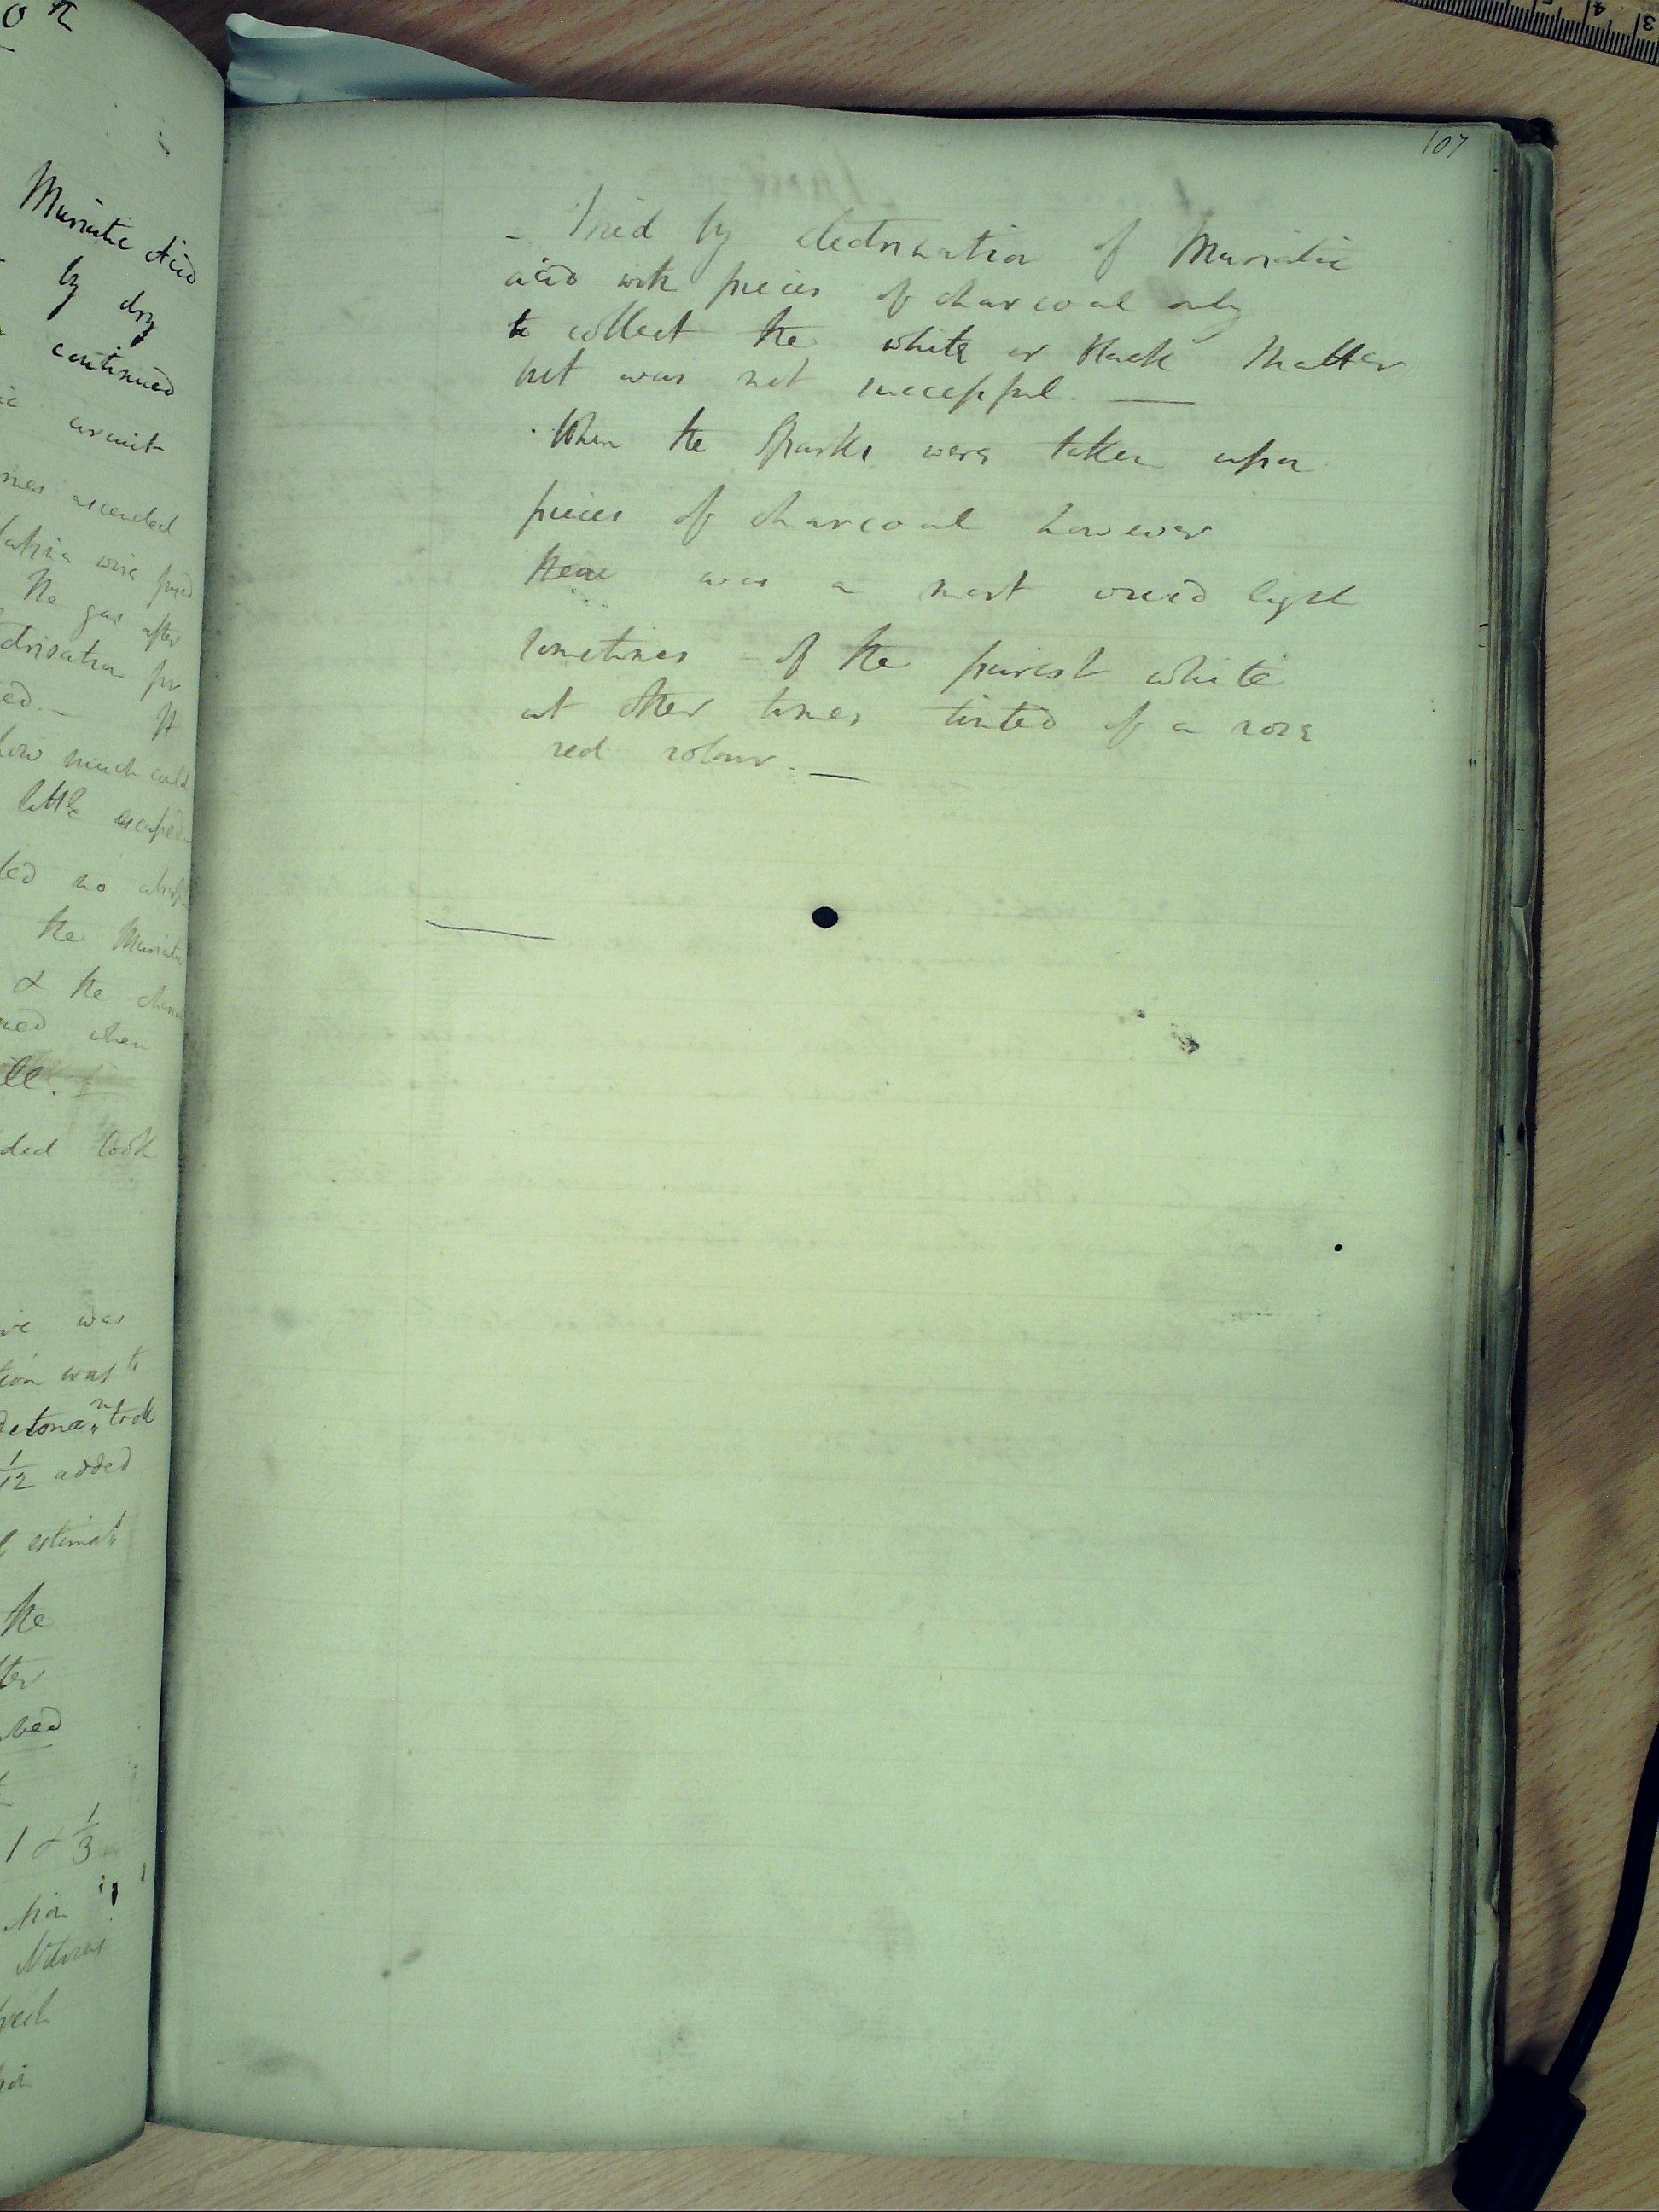 on
Muriatic Acid
by dry
continued
circuit
ascended
wire fused
the gas after
It
how much could
little escaped
no
the Muriatic
& the
when
took
was
was to
took
1/12 added
the
1 & 1/3
Nitrous
107
- Tried by electrization of Muriatic
acid with pieces of charcoal only
to collect the white or black matter
but was not successful. —
- When the Sparks were taken upon
pieces of charcoal however
there was a most vivid light
sometimes - of the purest white
at other times tinted of a rose
red colour. —
3
4
5